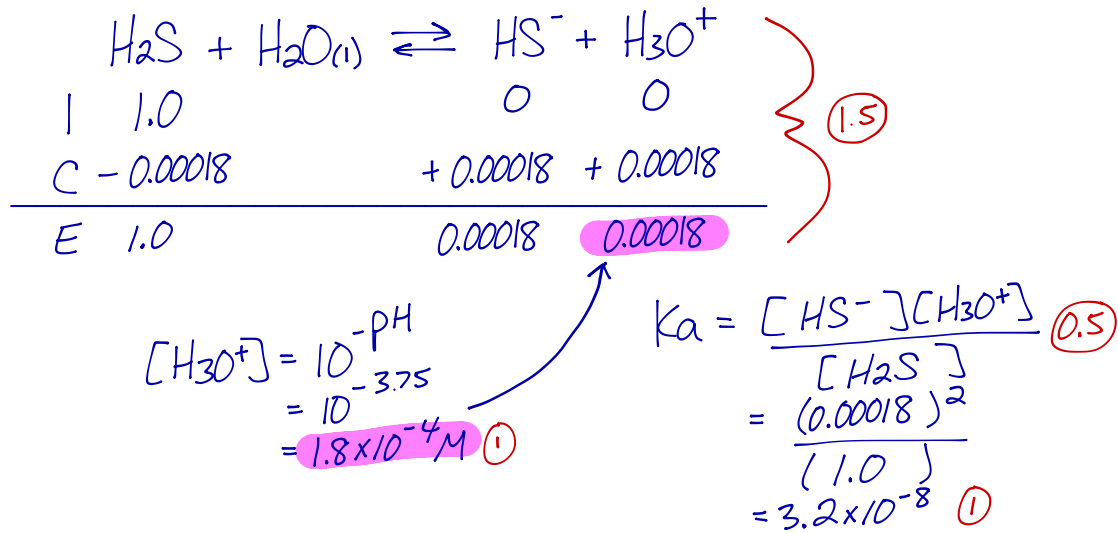 H2S + H2O(l) ⇄ HS⁻ + H3O⁺
I 1.0 0 0
1.5
C - 0.00018 + 0.00018 + 0.00018
E 1.0 0.00018 0.00018
[H3O⁺] = 10^-pH
= 10^-3.75
= 1.8×10⁻⁴ M 1
Ka = [HS⁻][H3O⁺] / [H2S] 0.5
= (0.00018)² / (1.0)
= 3.2×10⁻⁸ 1